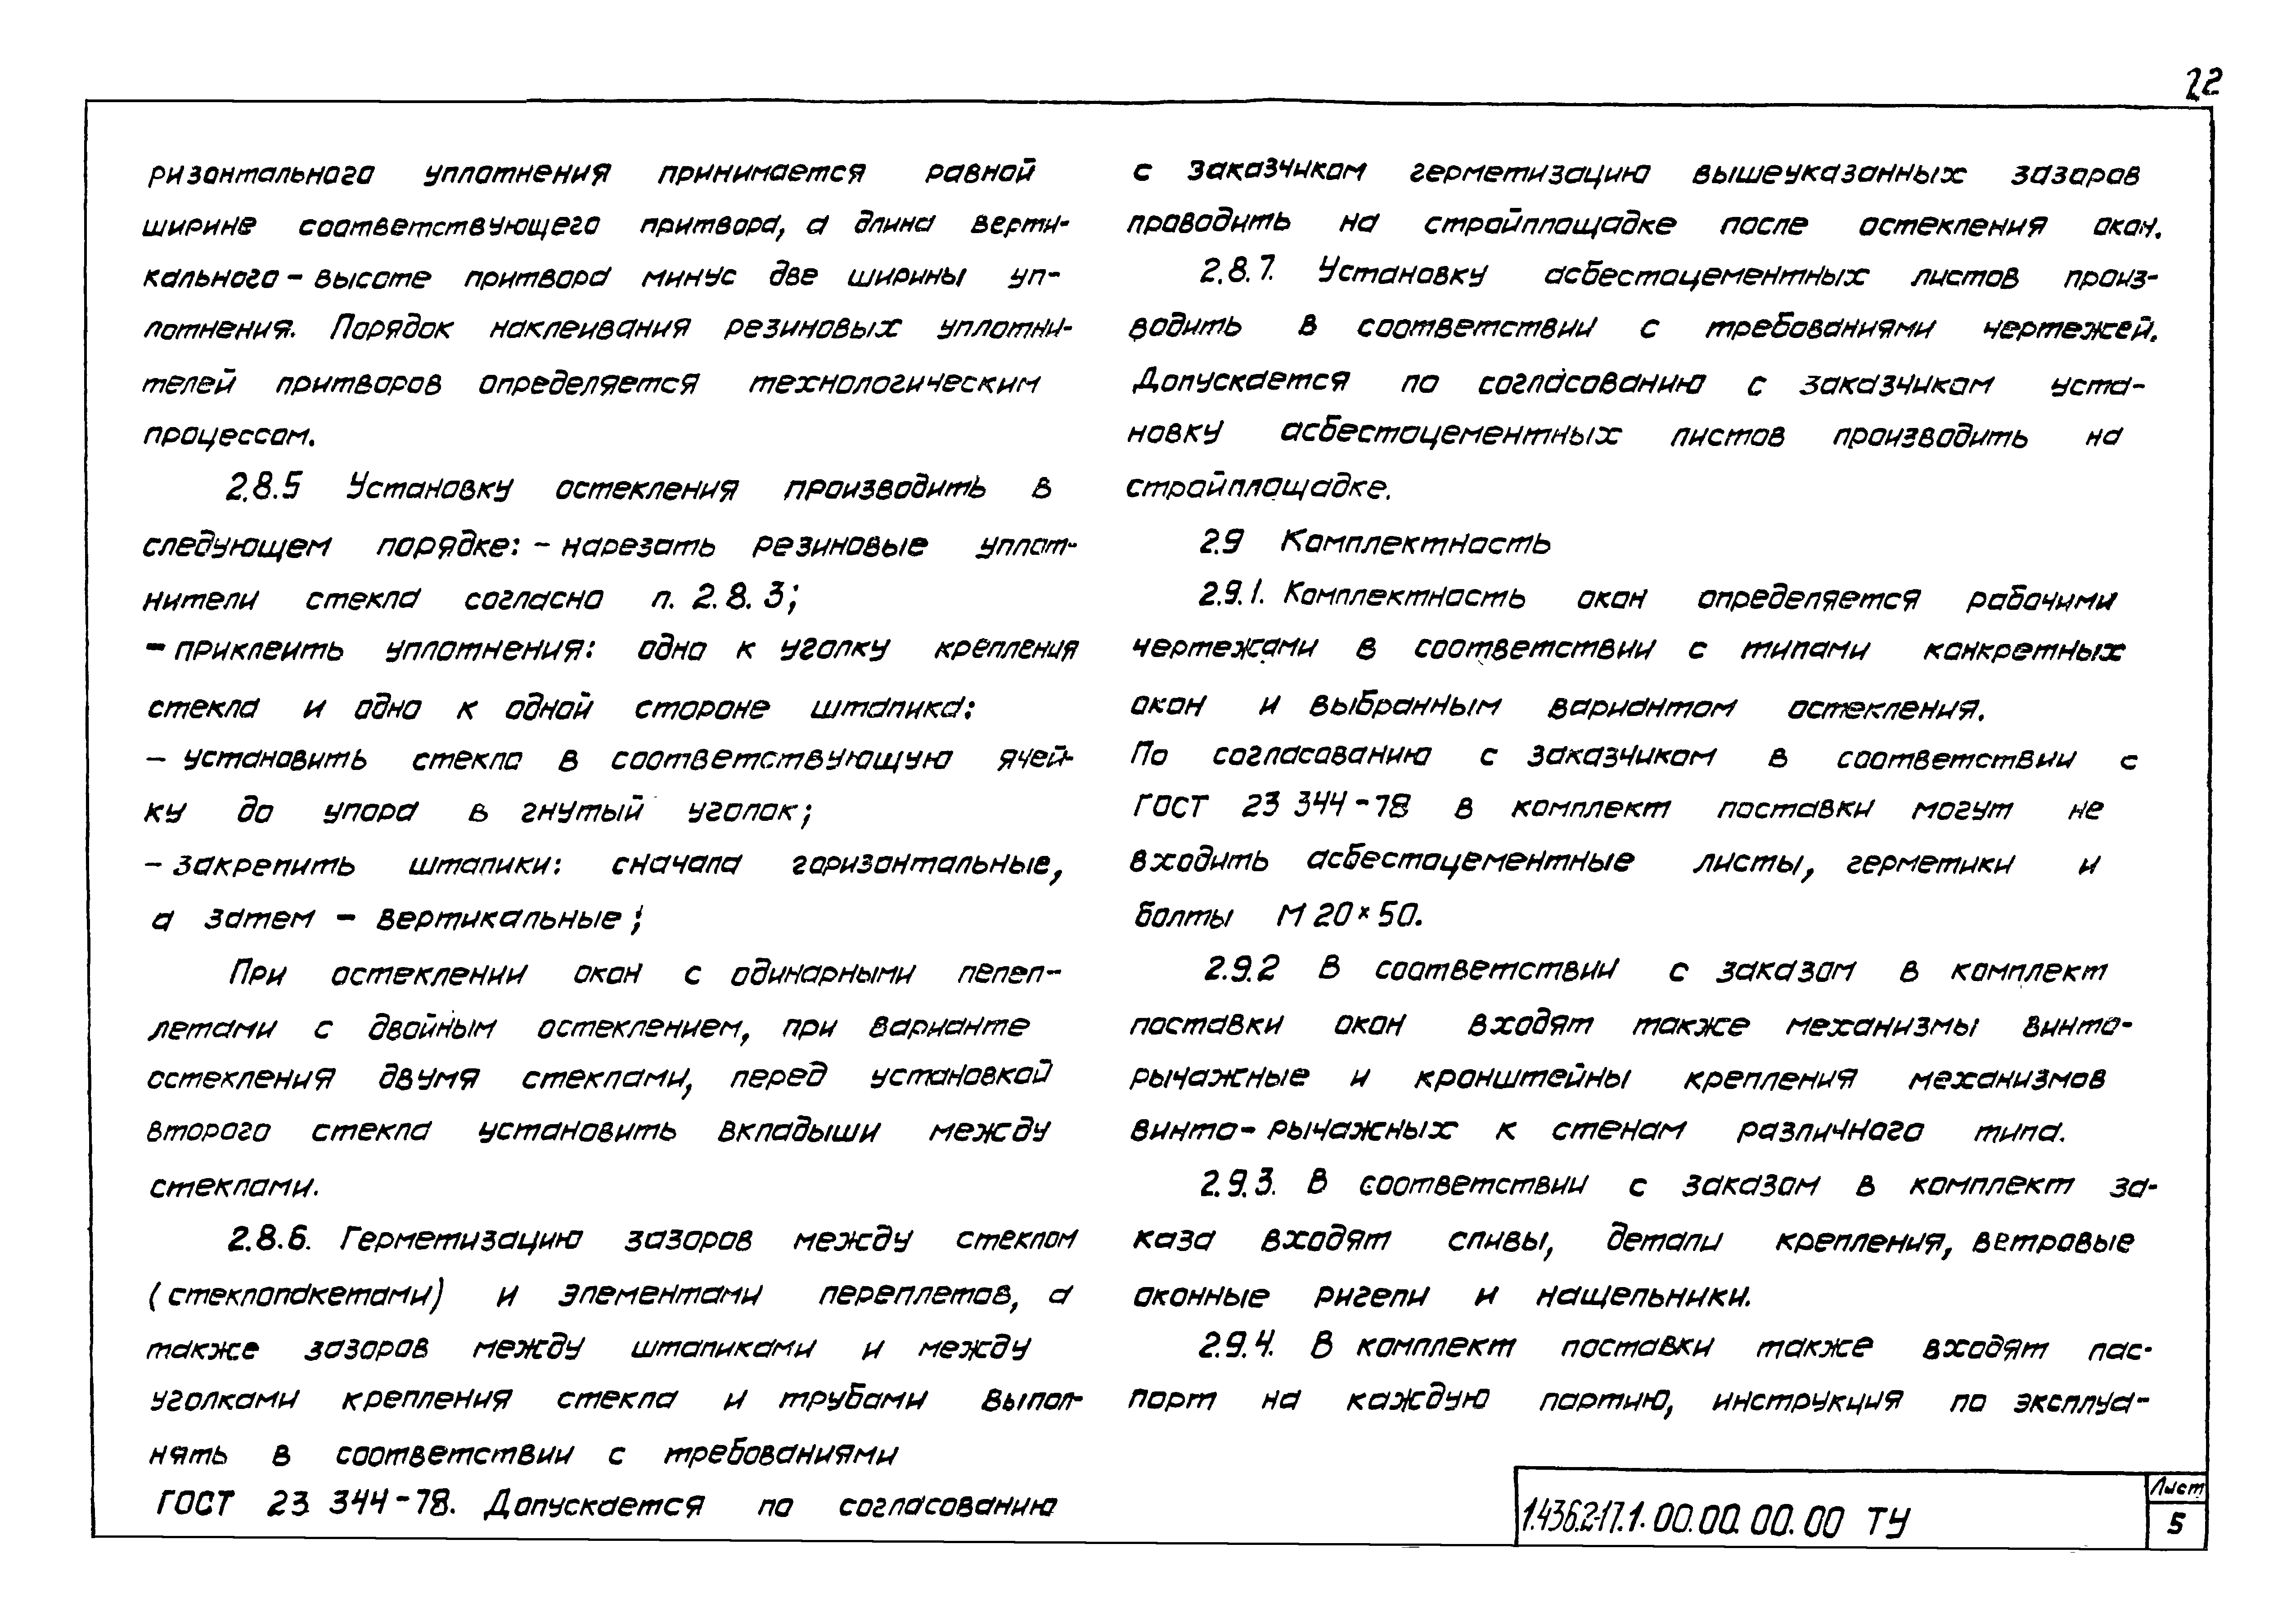 22
ризонтального уплотнения принимается равной
ширине соответствующего притвора, а длина верти-
кального – высоте притвора минус две ширины уп-
лотнения. Порядок наклеивания резиновых уплотни-
телей притворов определяется технологическим
процессом.
2.8.5 Установку остекления производить в
следующем порядке: – нарезать резиновые уплот-
нители стекла согласно п. 2.8.3;
– приклеить уплотнения: одно к уголку крепления
стекла и одно к одной стороне штапика:
– установить стекло в соответствующую ячей-
ку до упора в гнутый уголок;
– закрепить штапики: сначала горизонтальные,
а затем – вертикальные;
При остеклении окон с одинарными пепеп-
летами с двойным остеклением, при варианте
остекления двумя стеклами, перед установкой
второго стекла установить вкладыши между
стеклами.
2.8.6. Герметизацию зазоров между стеклом
(стеклопакетами) и элементами переплетов, а
также зазоров между штапиками и между
уголками крепления стекла и трубами выпол-
нять в соответствии с требованиями
ГОСТ 23 344-78. Допускается по согласованию
с заказчиком герметизацию вышеуказанных зазоров
проводить на стройплощадке после остекления окон.
2.8.7. Установку асбестоцементных листов произ-
водить в соответствии с требованиями чертежей.
Допускается по согласованию с заказчиком уста-
новку асбестоцементных листов производить на
стройплощадке.
2.9 Комплектность
2.9.1. Комплектность окон определяется рабочими
чертежами в соответствии с типами конкретных
окон и выбранным вариантом остекления.
По согласованию с заказчиком в соответствии с
ГОСТ 23 344-78 в комплект поставки могут не
входить асбестоцементные листы, герметики и
болты М 20×50.
2.9.2 В соответствии с заказом в комплект
поставки окон входят также механизмы винто-
рычажные и кронштейны крепления механизмов
винто-рычажных к стенам различного типа.
2.9.3. В соответствии с заказом в комплект за-
каза входят сливы, детали крепления, ветровые
оконные ригели и нащельники.
2.9.4. В комплект поставки также входят пас-
порт на каждую партию, инструкция по эксплуа-
1.436.2-17.1.00.00.00.00 ТУ
Лист
5